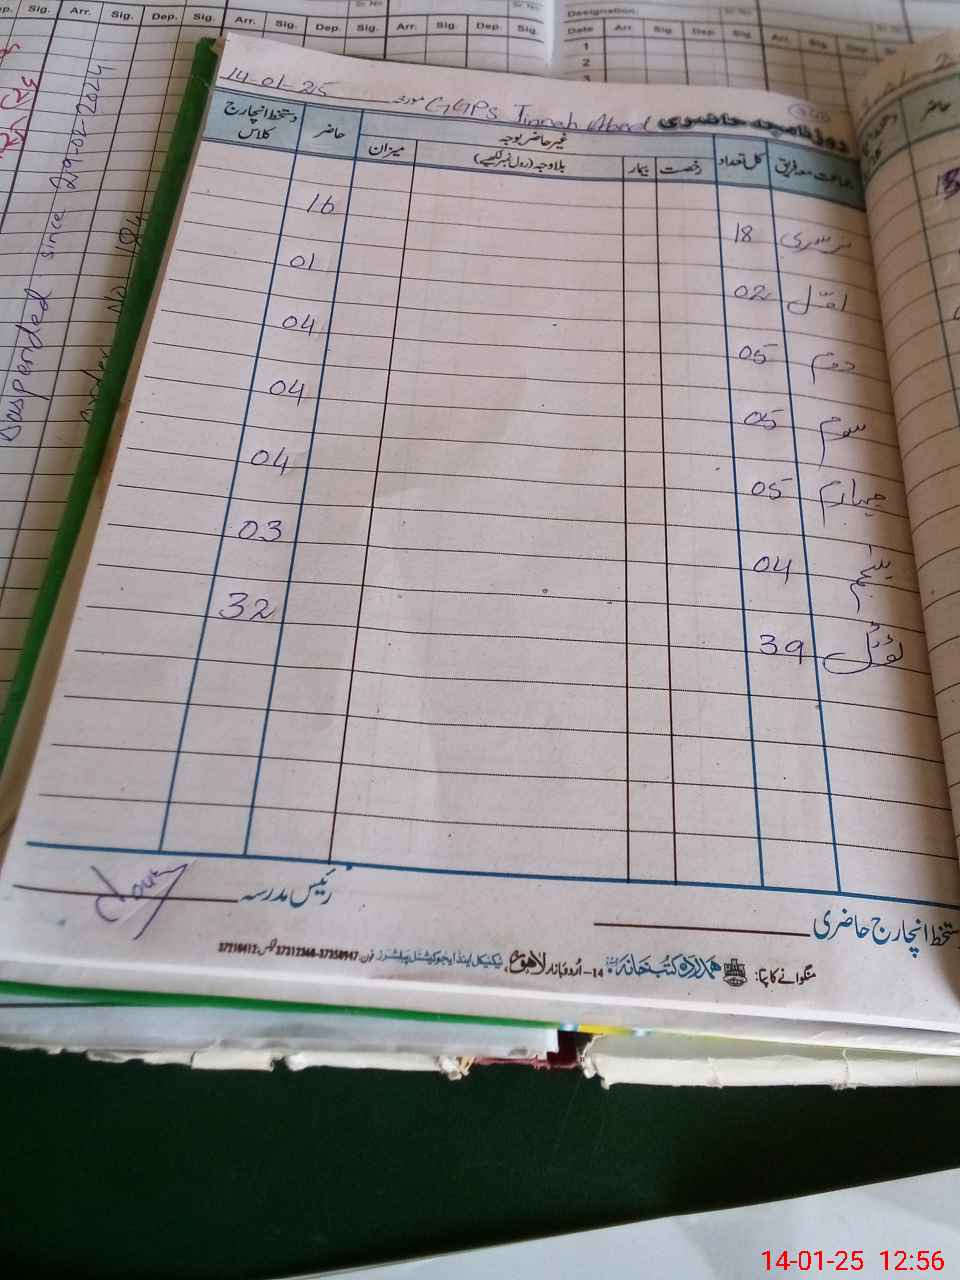 Arr. Sig. Dep. Sig. Arr. Sig. Dep. Sig.
Designation:
Date Arr. Sig. Dep. Sig. Arr. Sig. Dep.
1
2
Suspended since 29-02-2024
order No 184
روزنامچہ حاضری GGPS Jinnah Abad مورخہ 14-01-25
جماعت معہ فریق کل تعداد غیر حاضر بوجہ حاضر دستخط انچارج کلاس
رخصت بیمار بلاوجہ (رول نمبر لکھیے) میزان
نرسری 18 16
اول 02 01
دوم 05 04
سوم 05 04
چہارم 05 04
پنجم 04 03
ٹوٹل 39 32
دستخط انچارج حاضری رئیس مدرسہ
منگوانے کا پتا: ہمدرد کتب خانہ 14-اُردو بازار لاہور، ٹیکنیکل اینڈ ایجوکیشنل پبلشرز فون: 37312368-37350947 فیکس: 37210412
14-01-25 12:56